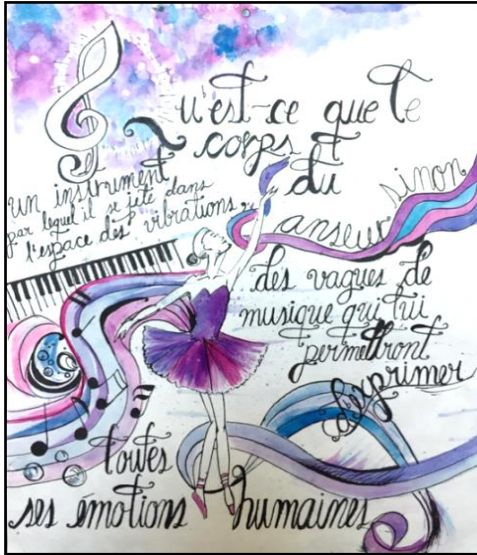 Qu'est-ce que le
corps et
du
danseur sinon
un instrument
par lequel il se jète dans
l'espace des vibrations,
des vagues de
musique qui lui
permettront
d'exprimer
toutes
ses émotions humaines